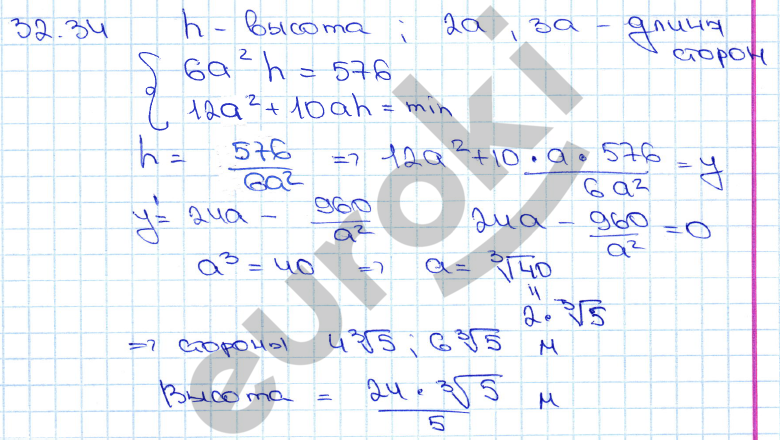 32.34 h - высота ; 2a , 3a - длина сторон
{ 6a² h = 576
12a² + 10ah = min
h = 576/6a² => 12a² + 10 · a · 576/6a² = y
y' = 24a - 960/a² 24a - 960/a² = 0
a³ = 40 => a = ∛40
"
2 · ∛5
=> стороны 4∛5 ; 6∛5 м
Высота = 24 · ∛5/5 м
euroki